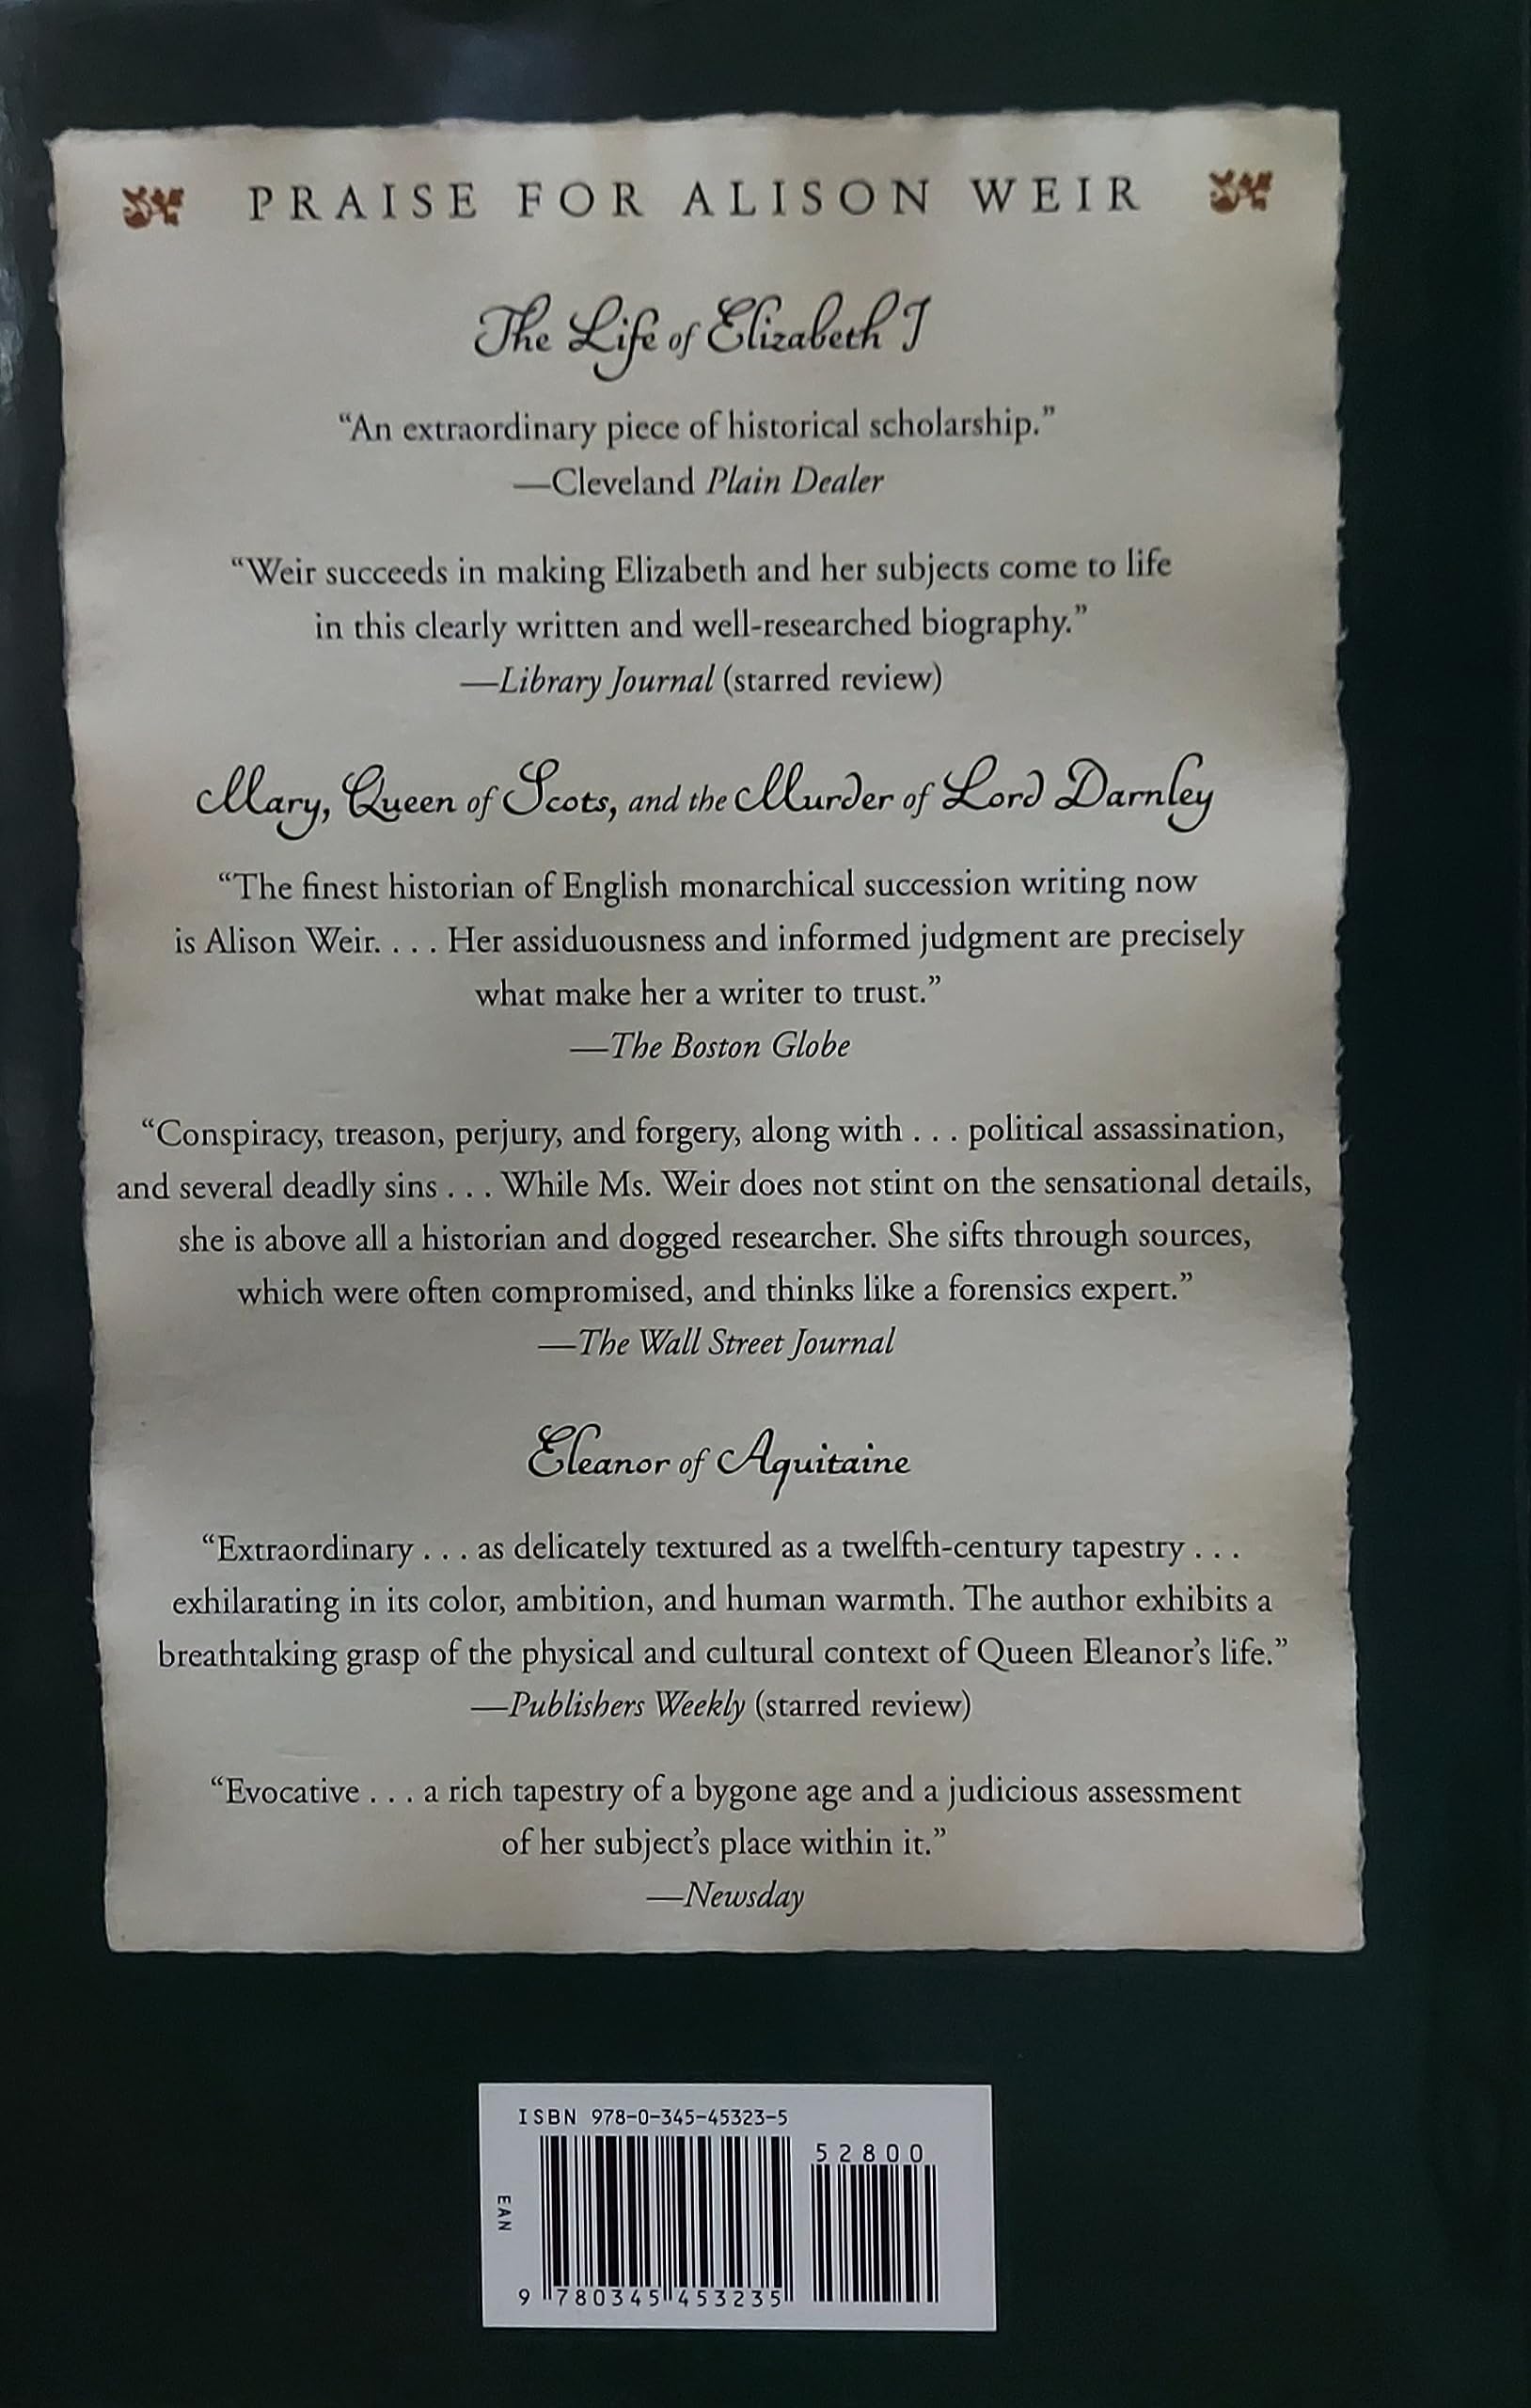 PRAISE FOR ALISON WEIR
The Life of Elizabeth I
“An extraordinary piece of historical scholarship.”
—Cleveland Plain Dealer
“Weir succeeds in making Elizabeth and her subjects come to life
in this clearly written and well-researched biography.”
—Library Journal (starred review)
Mary, Queen of Scots, and the Murder of Lord Darnley
“The finest historian of English monarchical succession writing now
is Alison Weir. . . . Her assiduousness and informed judgment are precisely
what make her a writer to trust.”
—The Boston Globe
“Conspiracy, treason, perjury, and forgery, along with . . . political assassination,
and several deadly sins . . . While Ms. Weir does not stint on the sensational details,
she is above all a historian and dogged researcher. She sifts through sources,
which were often compromised, and thinks like a forensics expert.”
—The Wall Street Journal
Eleanor of Aquitaine
“Extraordinary . . . as delicately textured as a twelfth-century tapestry . . .
exhilarating in its color, ambition, and human warmth. The author exhibits a
breathtaking grasp of the physical and cultural context of Queen Eleanor’s life.”
—Publishers Weekly (starred review)
“Evocative . . . a rich tapestry of a bygone age and a judicious assessment
of her subject’s place within it.”
—Newsday
ISBN 978-0-345-45323-5
52800
EAN
9 780345 453235